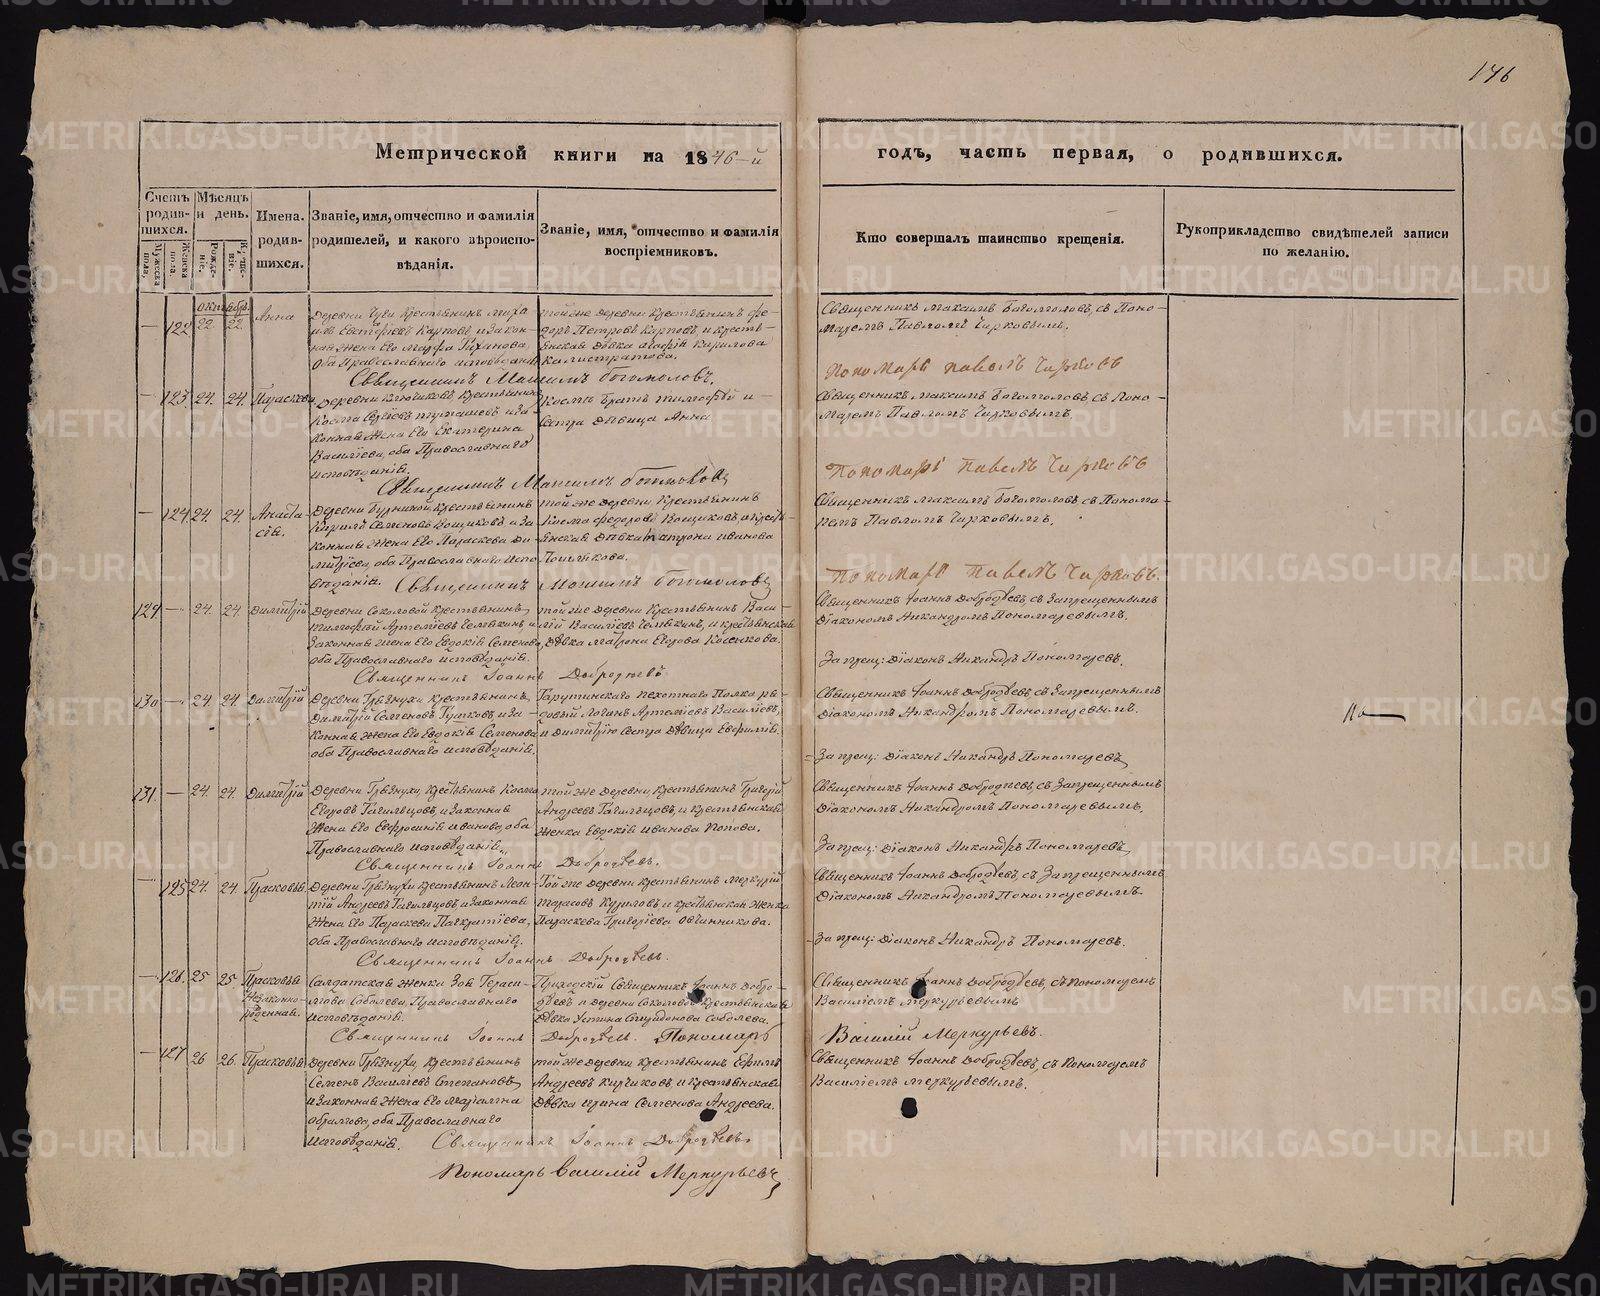 146
Метрической книги на 1846-й
годъ, часть первая, о родившихся.
Счетъ родив-шихся.
Мужеска пола.
Женска пола.
Мѣсяцъ и день.
Рожде-ніе.
Креще-ніе.
Имена родив-шихся.
Званіе, имя, отчество и фамилія
родителей, и какого вѣроиспо-
вѣданія.
Званіе, имя, отчество и фамилія
воспріемниковъ.
Кто совершалъ таинство крещенія.
Рукоприкладство свидѣтелей записи
по желанію.
Октябрь
— 122 22 22 Анна
крестьянинъ
Карповъ, и закон-
ная жена его Марфа
оба Православнаго исповѣданія
той же деревни крестьянинъ Ѳе-
доръ Петровъ Карповъ и кресть-
янская дѣвка Агафія Кирилова
Калистратова.
Священникъ Максимъ Богомоловъ, съ Поно-
маремъ Павломъ Чирковымъ.
Священникъ Максимъ Богомоловъ.
Пономарь Павелъ Чирковъ
— 123 24. 24. Параскева
крестьянинъ
Косма и за-
конная жена его Екатерина
Васильева, оба Православнаго
исповѣданія.
Космы братъ Тимофей и
сестра дѣвица Анна
Священникъ Максимъ Богомоловъ съ Поно-
маремъ Павломъ Чирковымъ.
Священникъ Максимъ Богомоловъ
Пономарь Павелъ Чирковъ
— 124 24. 24. Анаста-
сія.
крестьянинъ
Кирилъ Семеновъ и за-
конная жена его Параскева Ди-
митріева, оба Православнаго испо-
вѣданія.
той же деревни, крестьянинъ
Косма Федоровъ и кресть-
янская дѣвка Матрона Иванова
Священникъ Максимъ Богомоловъ съ Понома-
ремъ Павломъ Чирковымъ.
Священникъ Максимъ Богомоловъ
Пономарь Павелъ Чирковъ.
129 — 24. 24 Димитрій
Деревни Соколовой крестьянинъ
Тимофей Артемьевъ и
законная жена его Евдокія Семенова,
оба Православнаго исповѣданія.
той же деревни крестьянинъ Васи-
лій Васильевъ и крестьянская
дѣвка Матрона Егорова Косенкова.
Священникъ Іоаннъ Добродѣевъ, съ Запрещеннымъ
Діакономъ Никандромъ Пономаревымъ.
Священникъ Іоаннъ Добродѣевъ
Запрещ: Діаконъ Никандръ Пономаревъ.
130 — 24 24 Димитрій
Деревни Грязнухи крестьянинъ
Димитрій Семеновъ и за-
конная жена его Евдокія Семенова
оба Православнаго исповѣданія.
Тарутинскаго пехотнаго Полка ря-
довый Логинъ Артемьевъ Васильевъ,
и Димитрію сестра дѣвица Евфимія.
Священникъ Іоаннъ Добродѣевъ, съ Запрещеннымъ
Діакономъ Никандромъ Пономаревымъ.
Запрещ: Діаконъ Никандръ Пономаревъ
131. — 24. 24. Димитрій
Деревни Грязнухи, крестьянинъ Косма
Егоровъ Тагильцовъ, и законная
жена его Евфросинія Иванова, оба
Православнаго исповѣданія.
той же деревни, крестьянинъ Григорій
Андреевъ Тагильцовъ, и крестьянская
женка Евдокія Иванова Попова.
Священникъ Іоаннъ Добродѣевъ, съ Запрещеннымъ
Діакономъ Никандромъ Пономаревымъ.
Священникъ Іоаннъ Добродѣевъ.
Запрещ: Діаконъ Никандръ Пономаревъ
— 125 24. 24. Прасковья.
Деревни Грязнухи крестьянинъ Леон-
тій Андреевъ Тагильцовъ, и законная
жена его Параскева Панкратіева,
оба Православнаго исповѣданія.
той же деревни крестьянинъ Меркурій
Тарасовъ Куриловъ и крестьянская женка
Параскева Григоріева Овчинникова.
Священникъ Іоаннъ Добродѣевъ, съ Запрещеннымъ
Діакономъ Никандромъ Пономаревымъ.
Священникъ Іоаннъ Добродѣевъ.
Запрещ: Діаконъ Никандръ Пономаревъ.
— 126. 25 25 Прасковья
Незаконно-
рожденная.
Салдатская женка Зоя Гераси-
мова Соболева, Православнаго
исповѣданія.
Приходскій Священникъ Іоаннъ Добро-
дѣевъ и деревни Соколовой крестьянская
дѣвка Устина Спиридонова Соболева.
Священникъ Іоаннъ Добродѣевъ, съ Пономаремъ
Василіемъ Меркурьевымъ
Священникъ Іоаннъ Добродѣевъ. Пономарь
Василій Меркурьевъ.
— 127 26 26. Прасковья
Деревни Грязнухи, крестьянинъ
Семенъ Васильевъ Степановъ
и законная жена его Маріамна
Абрамова, оба Православнаго
исповѣданія.
той же деревни крестьянинъ Ефимъ
Андреевъ и крестьянская
дѣвка Ирина Семенова Андреева.
Священникъ Іоаннъ Добродѣевъ, съ Пономаремъ
Василіемъ Меркурьевымъ.
Священникъ Іоаннъ Добродѣевъ.
Пономарь Василій Меркурьевъ
METRIKI.GASO-URAL.RU